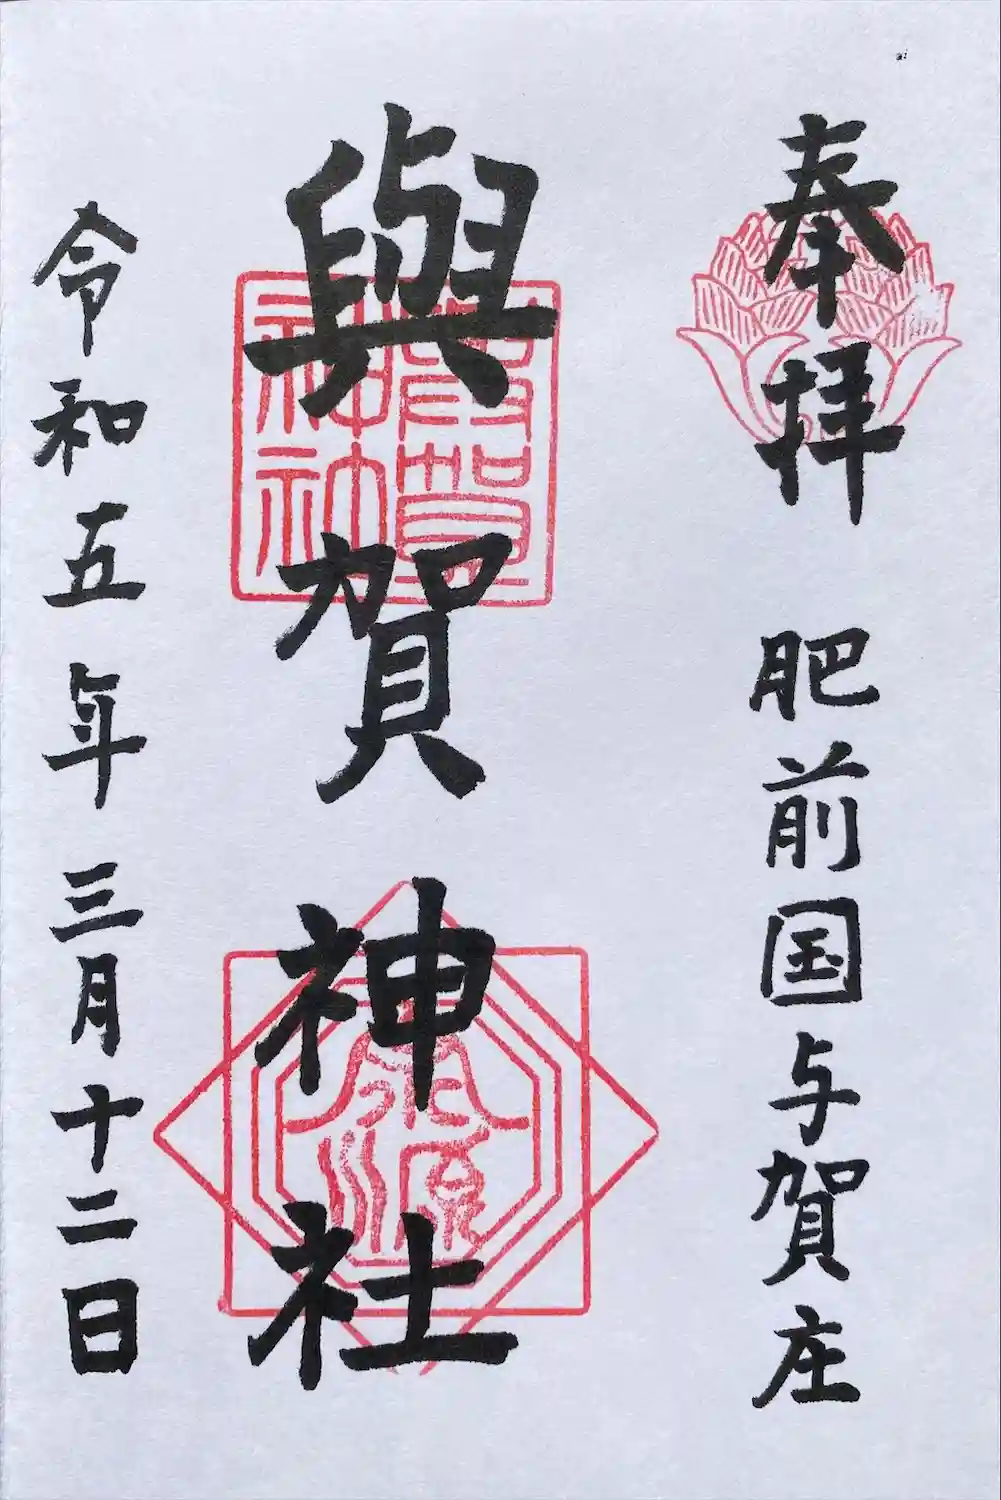 奉拝 肥前国与賀庄
與賀神社
令和五年三月十二日
與賀神社